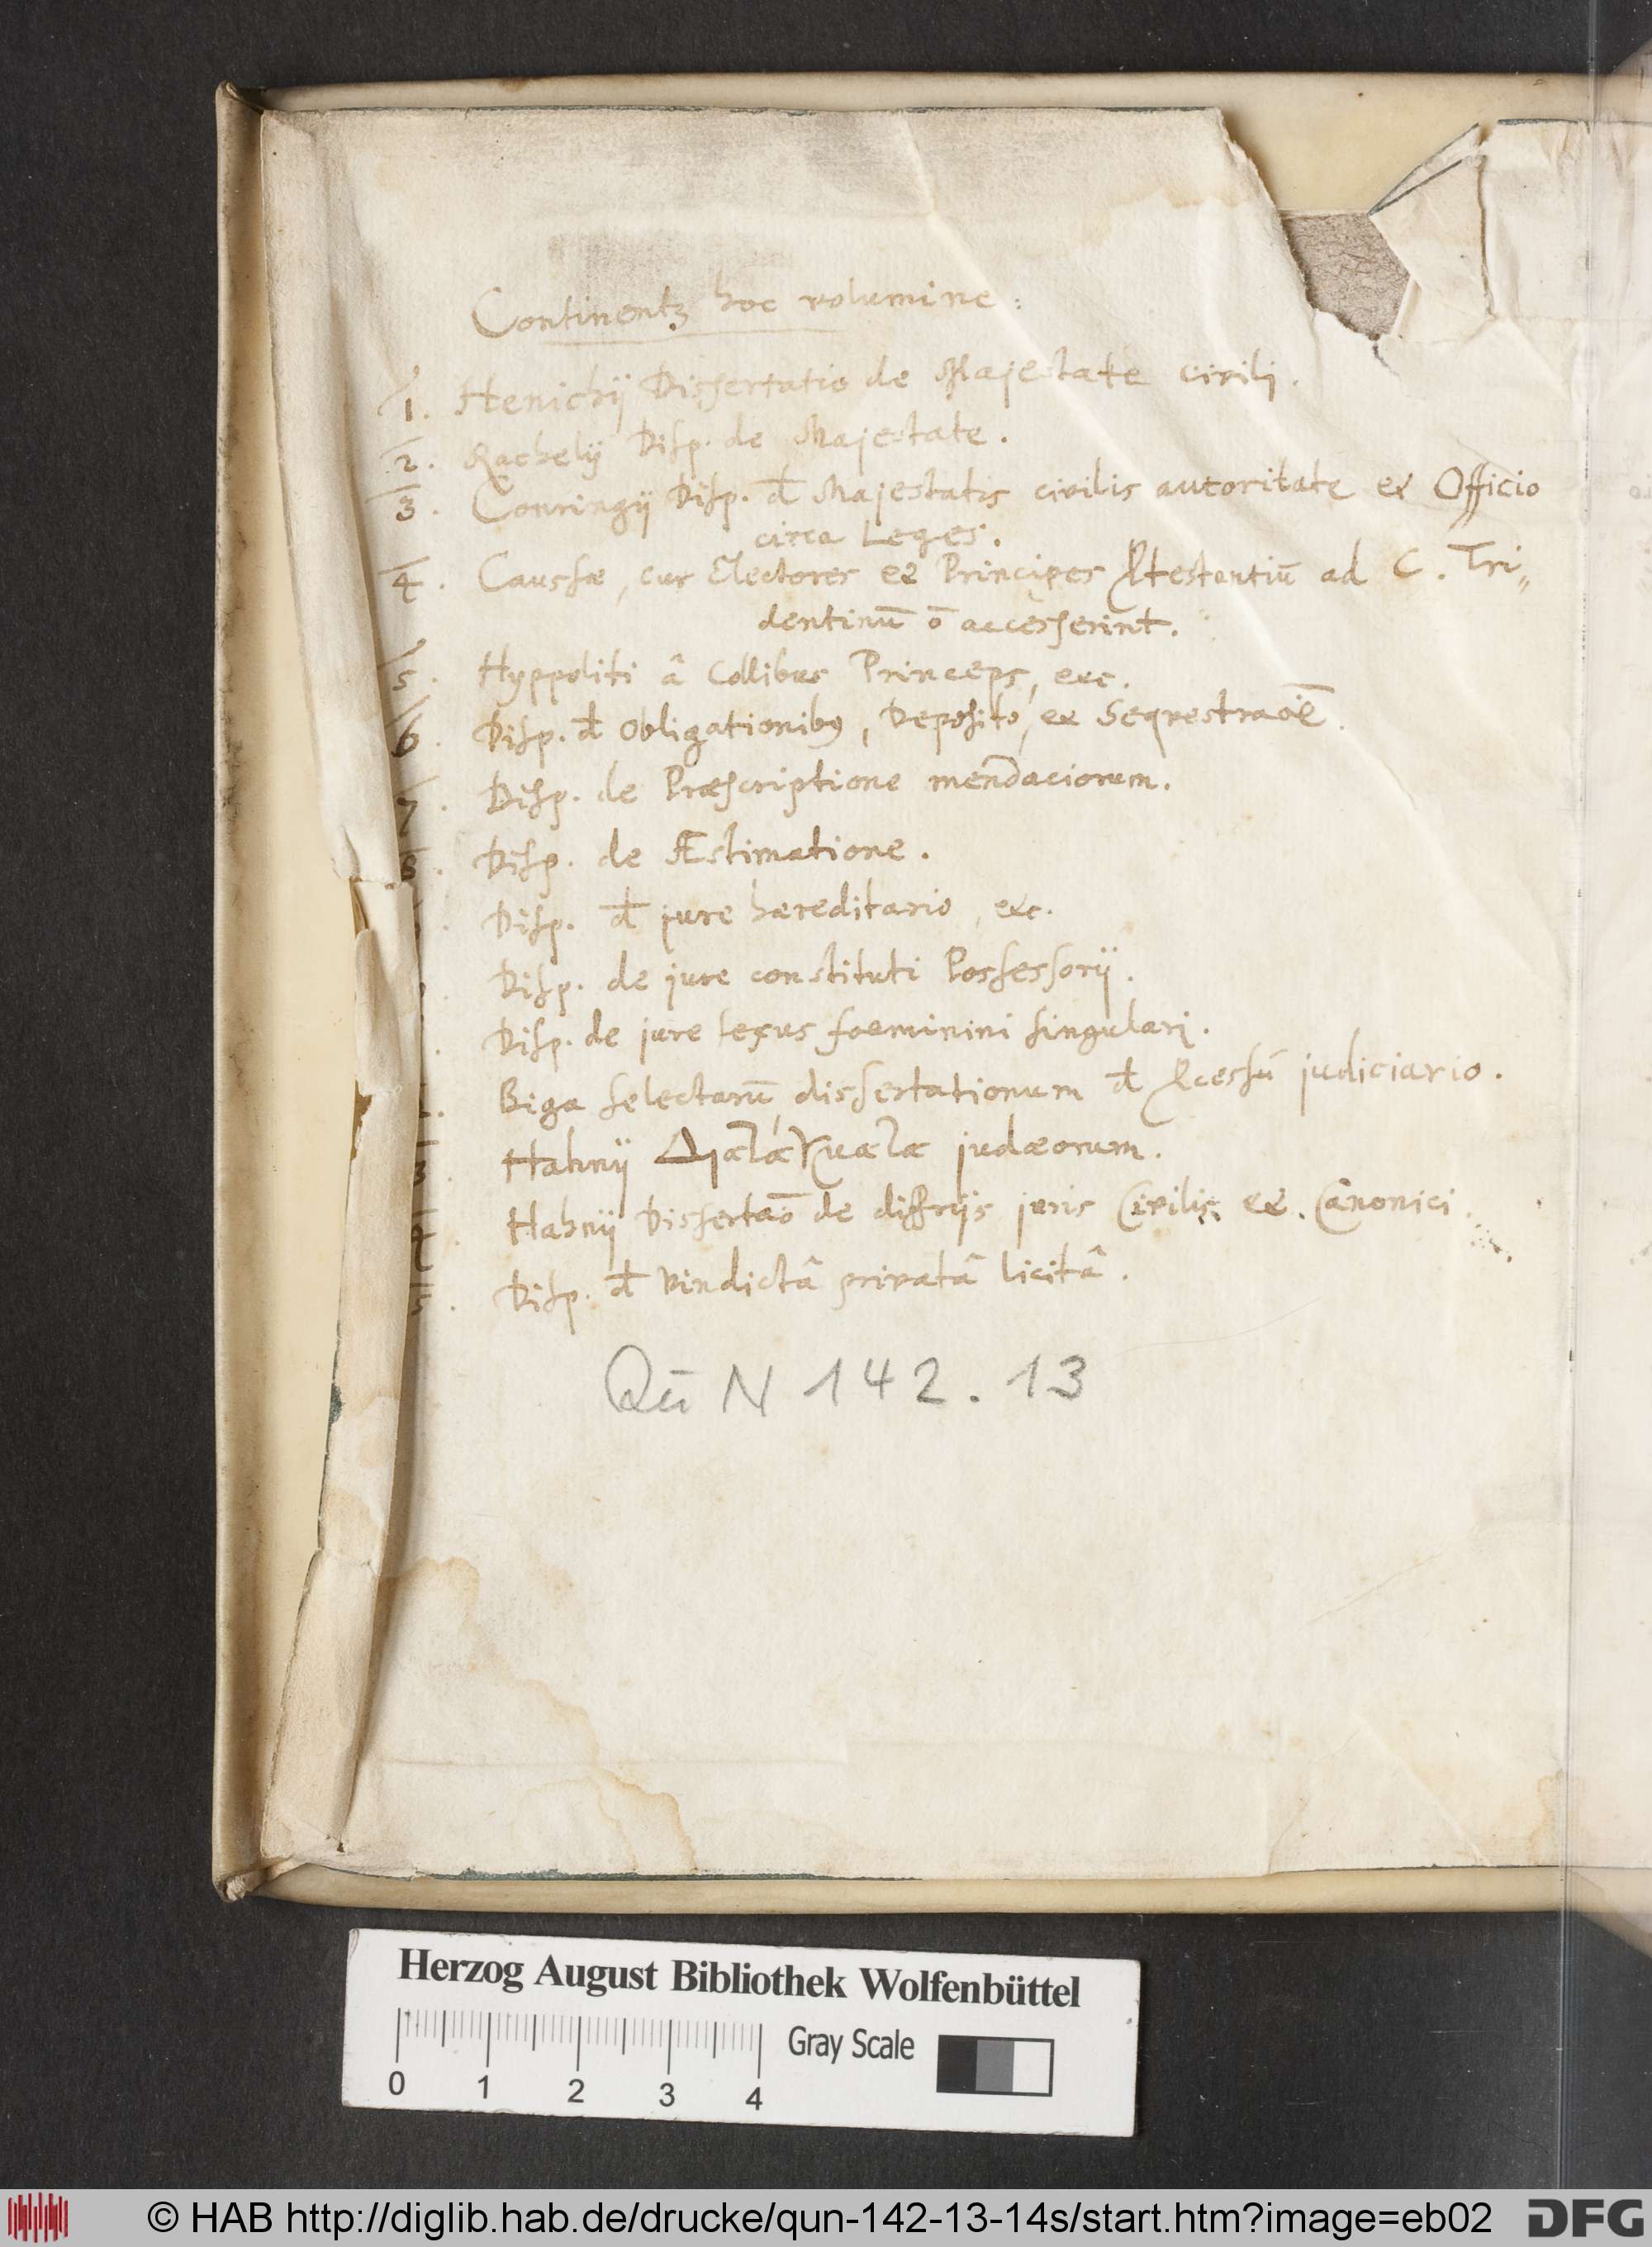 Continentꝫ hoc volumine:
1. Henichij Dissertatio de Majestate civili.
2. Rachelij Disp. de Majestate.
3. Conringij Disp. đ Majestatis civilis autoritate et Officio
circa Leges.
4. Caussæ, cur Electores et Principes Ptestantiū ad C. Tri„
dentinū ō accesserint.
5. Hyppoliti â Collibus Princeps, etc.
6. Disp. đ Obligationibꝰ, Deposito, et Seqvestraōē.
7. Disp. de Præscriptione mendaciorum.
8. Disp. de Æstimatione.
Disp. đ jure hæreditario, etc.
Disp. de jure constituti Possessorij.
Disp. de jure sexus foeminini singulari.
Biga selectarū dissertationum đ Pcessū judiciario.
3. Hahnij judæorum.
4. Hahnij Dissertaō de diffrijs juris Civilis et Canonici
5. Disp. đ vindictâ privatâ licitâ.
Qū N 142.13
Herzog August Bibliothek Wolfenbüttel
Gray Scale
0 1 2 3 4
© HAB http://diglib.hab.de/drucke/qun-142-13-14s/start.htm?image=eb02 DFG